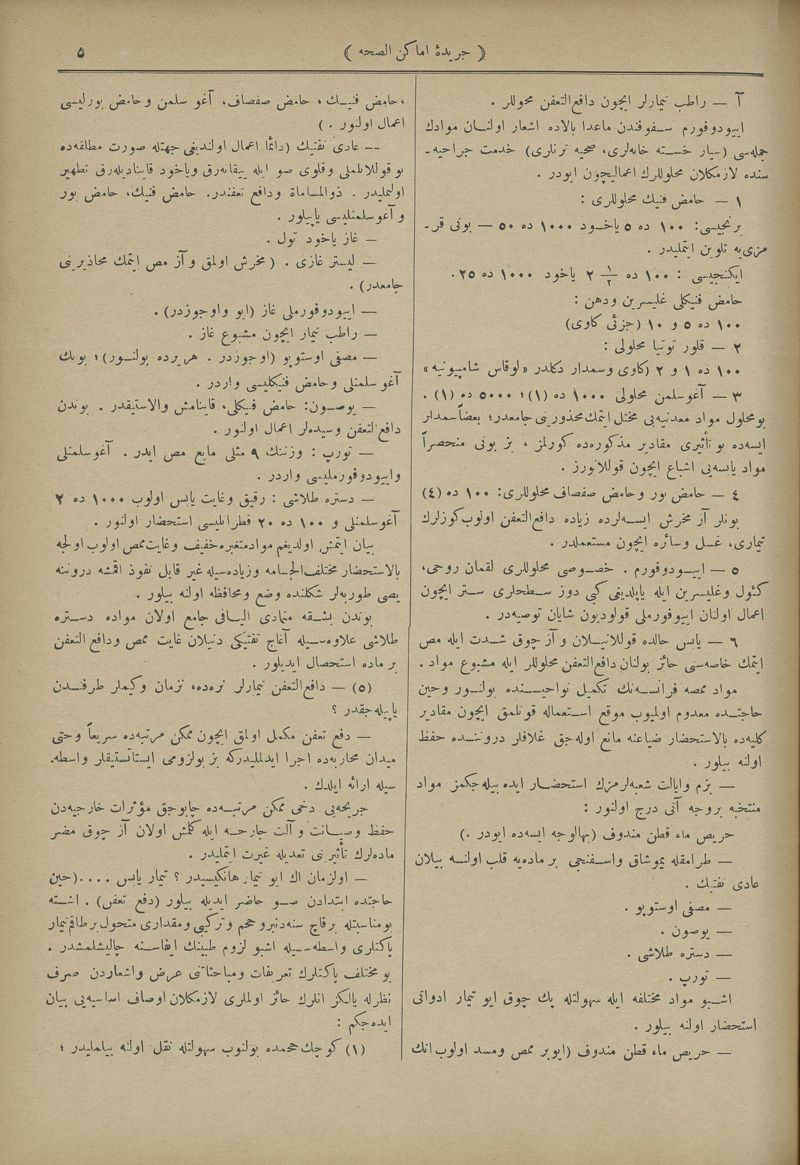 ﴿ جریدۀ اماكن الصحه ﴾
٥
آ — راطب تیمارلر ایچون دافع‌التعفن محوللر .
اییودوفورم سفوفندن ماعدا بالاده اشعار اولنان موادك
جمله‌سی (سیار خسته خانه‌لری، صحیه ترنلری) خدمت جراحیه-
سنده لازمكلان محلوللرك اعمالیچون ایودر .
١ — حامض فنیك محلوللری :
برنجیسی: ١٠٠ ده ٥ یاخود ١٠٠٠ ده ٥٠ — بونی قر-
مزی‌یه تلوین ایتملیدر .
ایكنجیسی : ١٠٠ ده ½ ٢ یاخود ١٠٠٠ ده ٢٥.
حامض فنیكلی غلیسرین ودهن :
١٠٠ ده ٥ و ١٠ (جزئی كاوی)
٢ — قلور توتیا محلولی :
١٠٠ ده ١ و ٢ (كاوی وسمدار دكلدر «لوقاس شامپیونیه»
٣ — آغو سلمن محلولی ١٠٠٠ ده (١)؛ ٥٠٠٠ ده (١) .
بو محلول مواد معدنیه‌یی مختل ایتمك محذورینی جامعدر؛ بعضاً سمدار
ایسه‌ده بو تأثیری مقادیر مذكوره‌ده كورلمز ، بز بونی منحصراً
مواد یابسه‌یی اشباع ایچون قوللانورز .
٤ — حامض بور وحامض صفصاف محلوللری: ١٠٠ ده (٤)
بونلر آز مخرش ایسه‌لرده زیاده دافع‌التعفن اولوب كوزلرك
تیماری، غسل وسائره ایچون مستعملدر .
٥ — اییودوفورم . خصوصی محلوللری لقمان روحی،
كئول وغلیسرین ایله یاپلدیغی كبی دوز سطحلری ستر ایچون
اعمال اولنان اییوفورملی قولودیون شایان توصیه‌در .
٦ — یابس حالده قوللانیلان و آز چوق شدت ایله مص
ایتمك خاصه‌سی حائز بولنان دافع‌التعفن محلوللر ایله مشبوع مواد .
مواد ممصه فرانسه‌نك تكمیل نواحیسنده بولنور وحین
حاجتده معدوم اولمیوب موقع استعماله قونلمق ایچون مقادیر
كلیه‌ده بالاستحضار ضیاعنه مانع اوله‌جق غلافلر دروننده حفظ
اولنه بیلور .
— بزم وایالت شعبه‌لرمزك استحضار ایده بیله‌جكمز مواد
منتخبه بروجه آتی درج اولنور :
حریص ماء قطن مندوف (بهالوجه ایسه‌ده ایودر .)
— طرامقله یموشاق واسفنجی بر ماده‌یه قلب اولنه بیلان
عادی تفتیك .
— مصفی اوستوپو .
— یوصون .
— دستره طلاشی .
— تورپ .
اشبو مواد مختلفه ایله سهولتله پك چوق ایو تیمار ادواتی
استحضار اولنه بیلور .
— حریص ماء قطن مندوف (ایوبر ممص ومسد اولوب انك
،حامض فنیك ، حامض صفصاف، آغو سلمن وحامض بورلیسی
اعمال اولنور . )
— عادی تفتیك (دائما اعمال اولندیغی جهتله صورت مطلقه‌ده
بو قوللانلملی وقلوی صو ایله ییقانه‌رق ویاخود قایناديله‌رق تطهیر
اولنملیدر . ذوالمساماة ودافع تعفندر. حامض فنیك، حامض بور
و آغو سلمنلیسی یاپیلور .
— غاز یاخود تول .
— لیستر غازی . (مخرش اولمق و آز مص ایتمك محاذیرینی
جامعدر) .
— اییودوفورملی غاز (ایو واوجوزدر) .
— راطب تیمار ایچون مشبوع غاز .
— مصفی اوستوپو (اوجوزدر . هر یرده بولنور)؛ بونك
آغو سلمنلی وحامض فنیكلیسی واردر .
— یوصون: حامض فنیكلی، قاینامش والاستیقدر . بوندن
دافع‌التعفن وسیده‌لر اعمال اولنور .
— تورپ : وزننك ٩ مثلی مایع مص ایدر . آغو سلمنلی
واییودوفورملیسی واردر .
— دستره طلاشی : رقیق وغایت یابس اولوب ١٠٠٠ ده ٢
آغو سلمنلی و ١٠٠ ده ٢٠ قطرانلیسی استحضار اولنور .
بیان ایتمش اولدیغم مواد متغیره خفیف وغایت ممص اولوب اولجه
بالاستحضار مختلف‌الجسامه وزیاده‌سیله غیر قابل نفوذ اقمشه دروننه
یصی طوربه‌لر شكلنده وضع ومحافظه اولنه بیلور .
بوندن بشقه متمادی الیافی جامع اولان مواده دستره
طلاشی علاوه‌سیله آغاج تفتیكی دنیلان غایت ممص ودافع التعفن
بر ماده استحصال ایدیلور .
(٥) — دافع‌التعفن تیمارلر نره‌ده، نزمان وكیملر طرفندن
یاپیله‌جقدر ؟
— دفع تعفن مكمل اولمق ایچون ممكن مرتبه‌ده سریعاً وحتی
میدان محاربه‌ده اجرا ایدلملیدركه بز بولزومی ایستاتستیقلر واسطه-
سیله ارائه ایلدك .
جریحه‌یی دخی ممكن مرتبه‌ده چابوجق مؤثرات خارجیه‌دن
حفظ وصیانت و آلت جارحه ایله كلمش اولان آز چوق مضر
ماده‌لرك تأثیرینی تعدیله غیرت ایتملیدر .
— اولزمان اك ایو تیمار هانكیسیدر ؟ تیمار یابس ....(حین
حاجتده ابتدادن صو حاضر ایدیله بیلور (دفع تعفن) . اشته
بو مناسبتله برقاچ سنه‌دنبرو حجم وتركیبی ومقداری متحول برطاقم تیمار
پاكتلری واسطه‌سیله اشبو لزوم طبینك ایفاسنه چالیشلمشدر .
بو مختلف پاكتلرك تعریفات ومباحثاتی عرض واشعاردن صرف
نظرله یالكز انلرك حائز اولملری لازمكلان اوصاف اساسیه‌یی بیان
ایده‌جكم :
(١) كوچك حجمده بولنوب سهولتله نقل اولنه بیلملیدر ؛